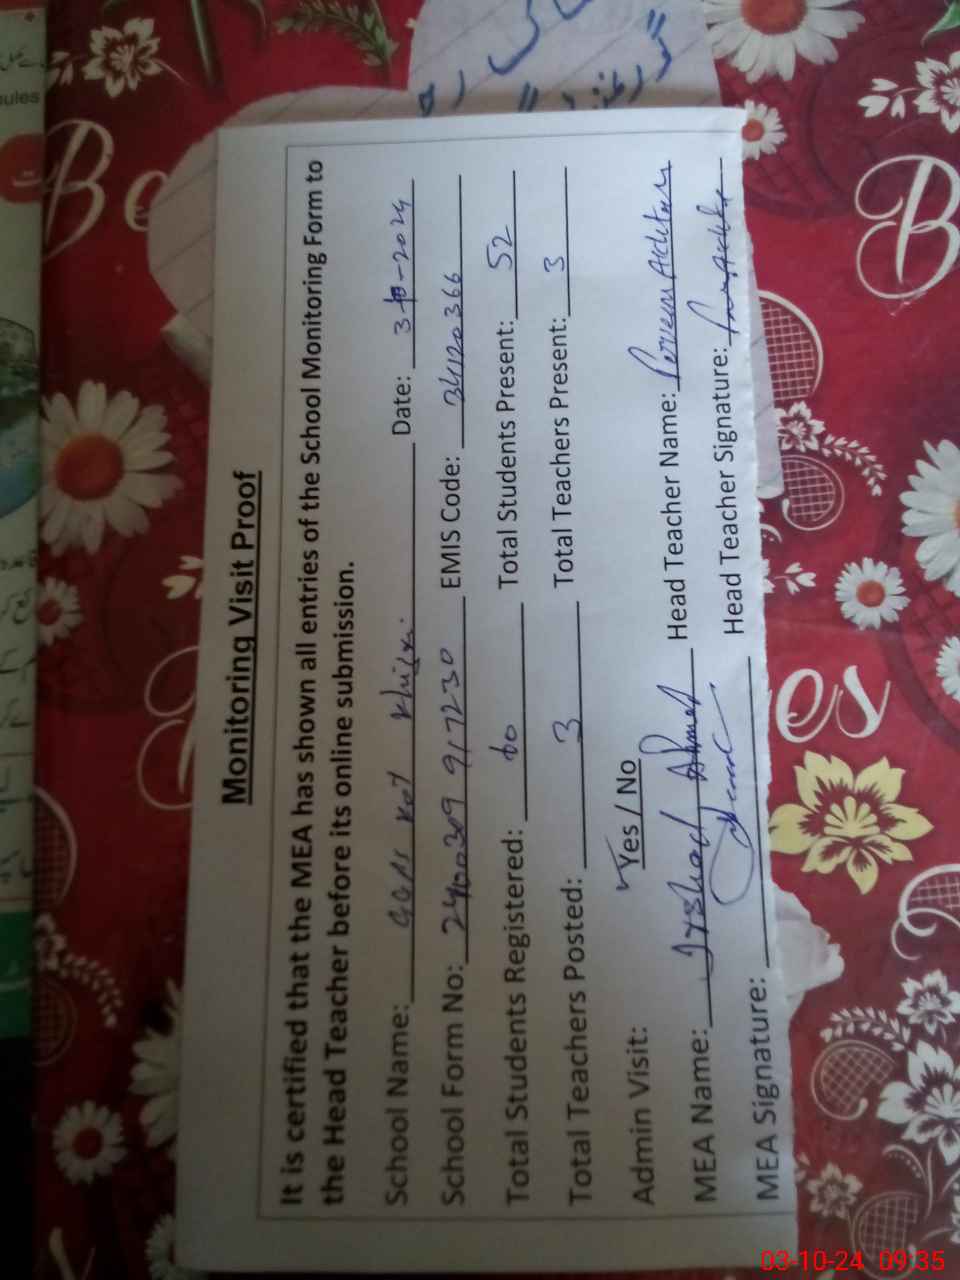 Monitoring Visit Proof
It is certified that the MEA has shown all entries of the School Monitoring Form to
the Head Teacher before its online submission.
School Name: GGPS Kot Date: 3-10-2024
School Form No: 2400309 917230 EMIS Code: 34120366
Total Students Registered: 60 Total Students Present: 52
Total Teachers Posted: 3 Total Teachers Present: 3
Admin Visit: Yes / No
MEA Name: Irshad Ahmed Head Teacher Name: Perveen Akhtar
MEA Signature: Head Teacher Signature:
Be
es
B
ules
03-10-24 09:35